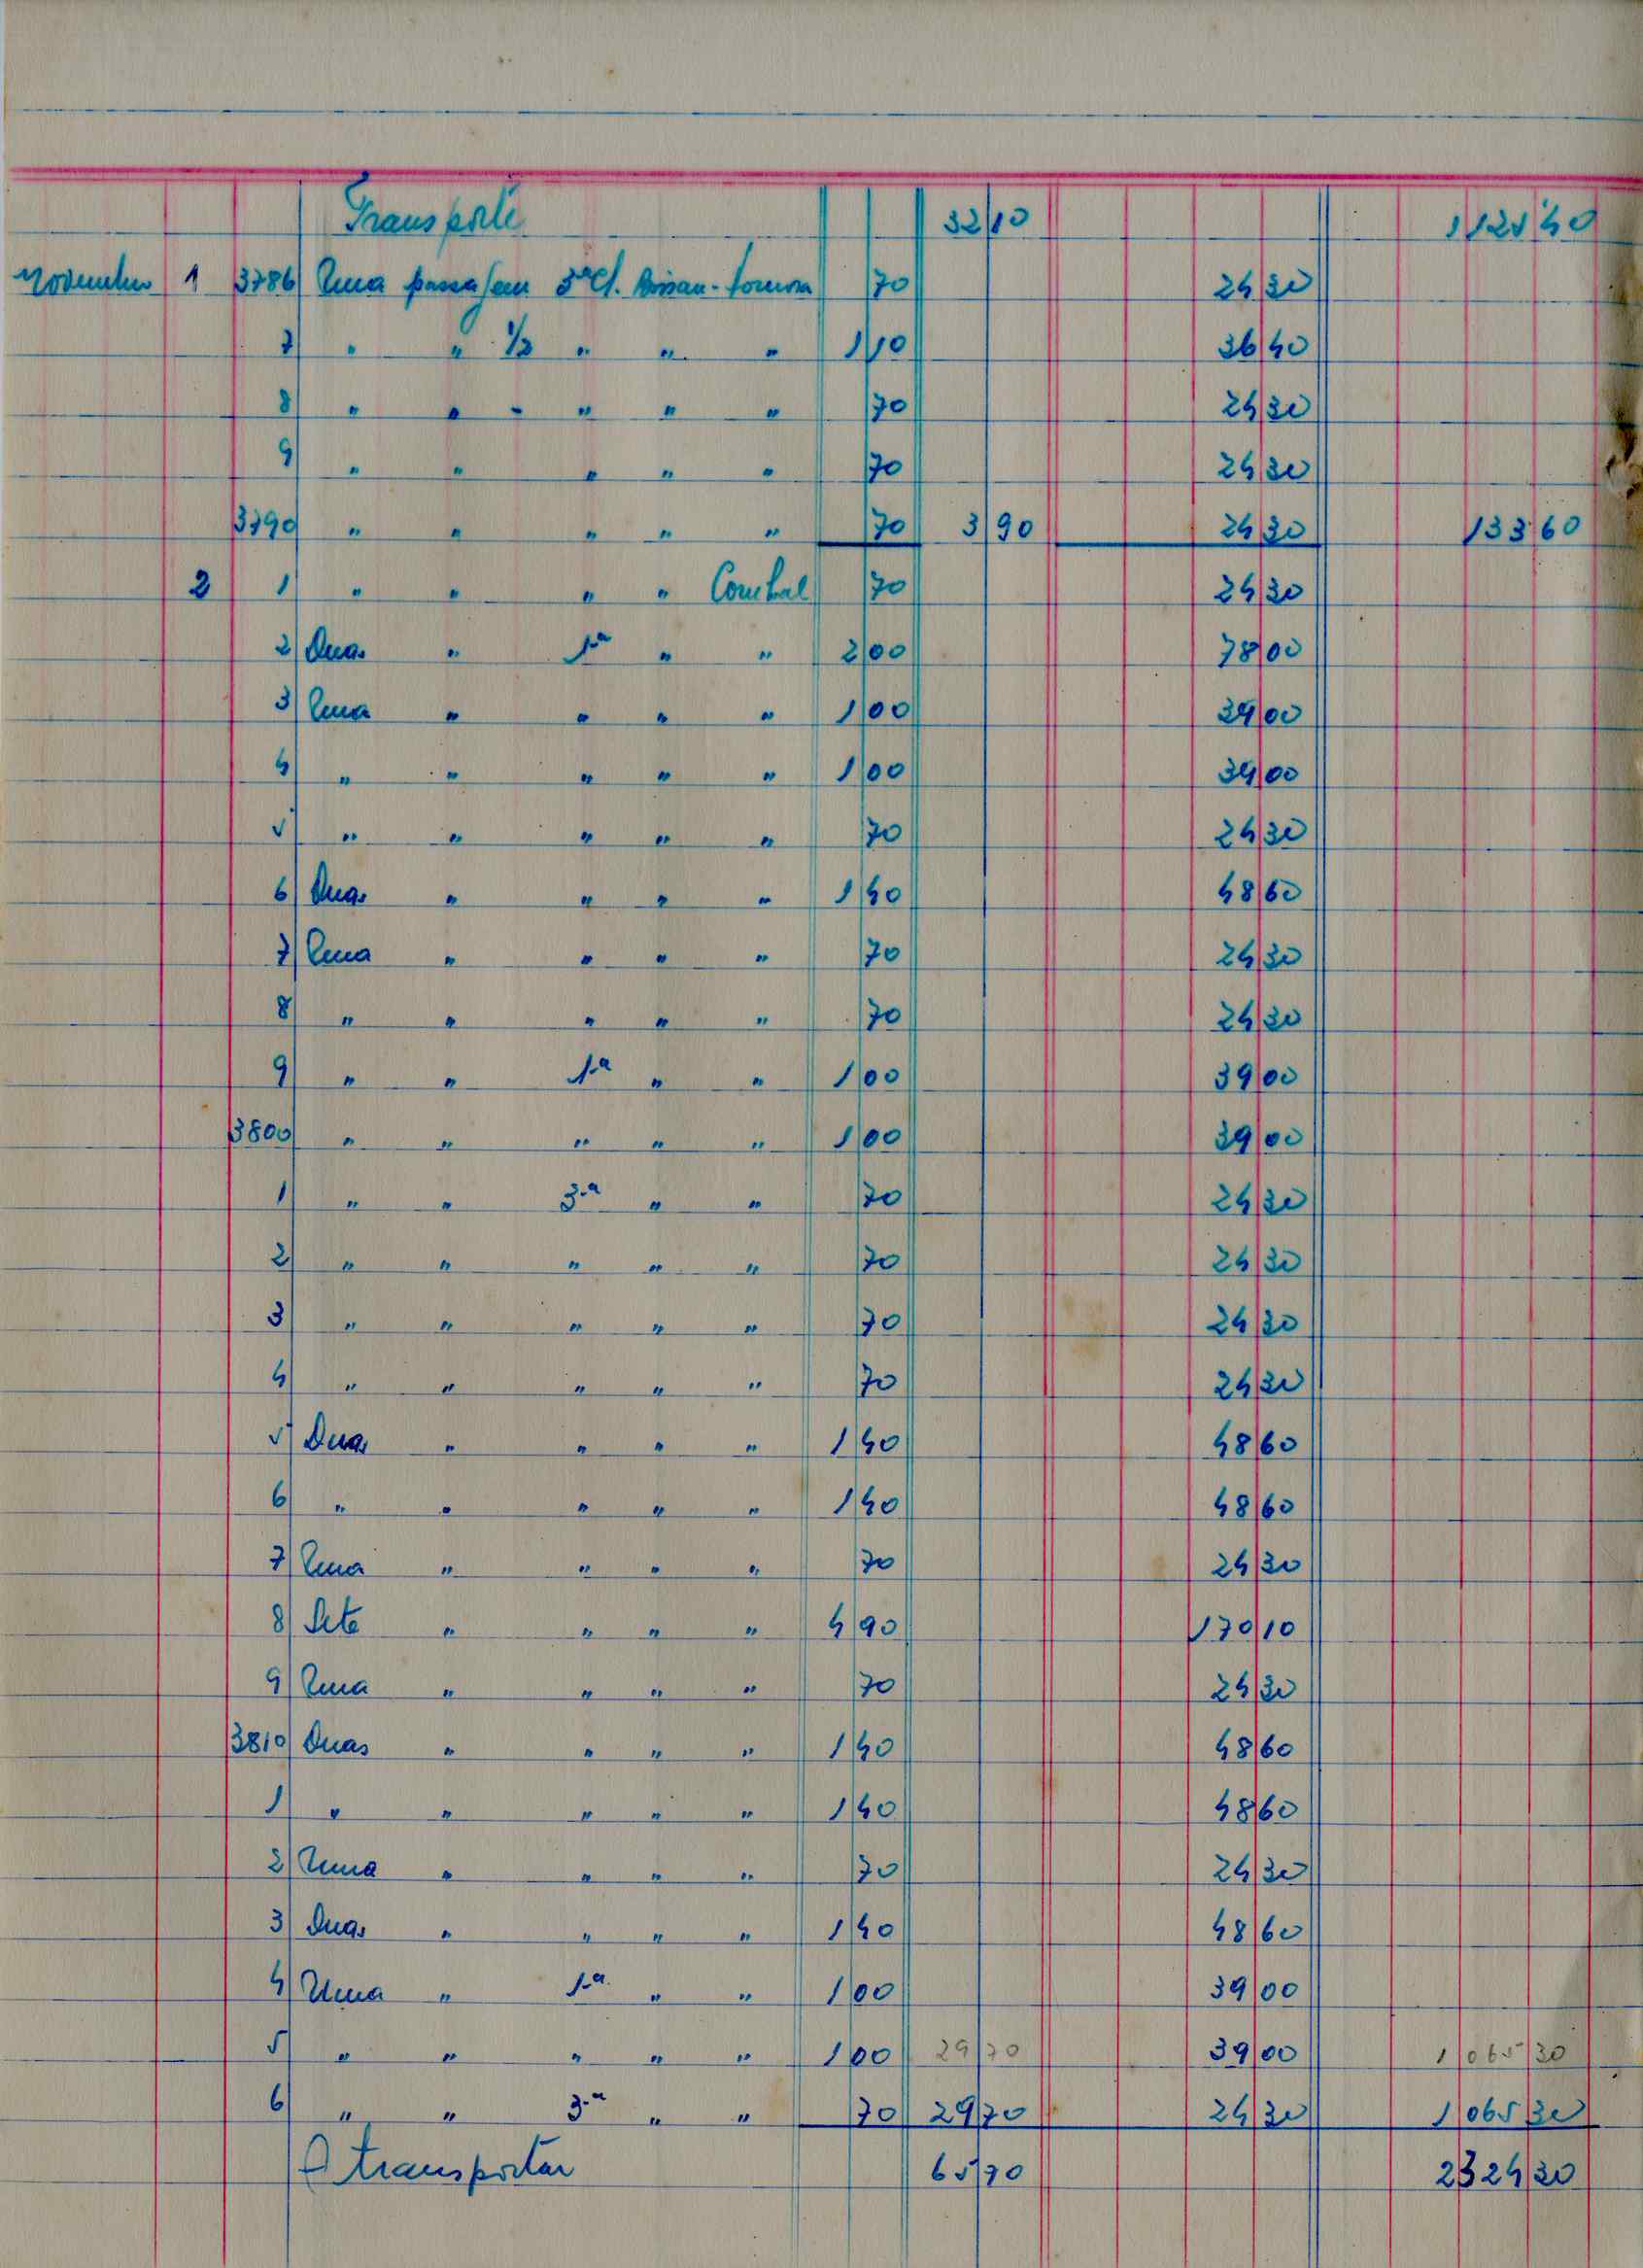 Transporte 32 10 1125 40
Novembro 1 3786 Uma passagem 3ª Cl. Bissau- 70 24 30
7 " " 1/2 " " " 1 10 36 40
8 " " - " " " 70 24 30
9 " " " " " 70 24 30
3790 " " " " " 70 3 90 24 30 133 60
2 1 " " " " 70 24 30
2 Duas " 1ª " " 2 00 78 00
3 Uma " " " " 1 00 39 00
4 " " " " " 1 00 39 00
5 " " " " " 70 24 30
6 Duas " " " " 1 40 48 60
7 Uma " " " " 70 24 30
8 " " " " " 70 24 30
9 " " 1ª " " 1 00 39 00
3800 " " " " " 1 00 39 00
1 " " 3ª " " 70 24 30
2 " " " " " 70 24 30
3 " " " " " 70 24 30
4 " " " " " 70 24 30
5 Duas " " " " 1 40 48 60
6 " " " " " 1 40 48 60
7 Uma " " " " 70 24 30
8 Sete " " " " 4 90 170 10
9 Uma " " " " 70 24 30
3810 Duas " " " " 1 40 48 60
1 " " " " " 1 40 48 60
2 Uma " " " " 70 24 30
3 Duas " " " " 1 40 48 60
4 Uma " 1ª " " 1 00 39 00
5 " " " " " 1 00 29 70 39 00 1 065 30
6 " " 3ª " " 70 29 70 24 30 1 065 30
A transportar 65 70 2324 30